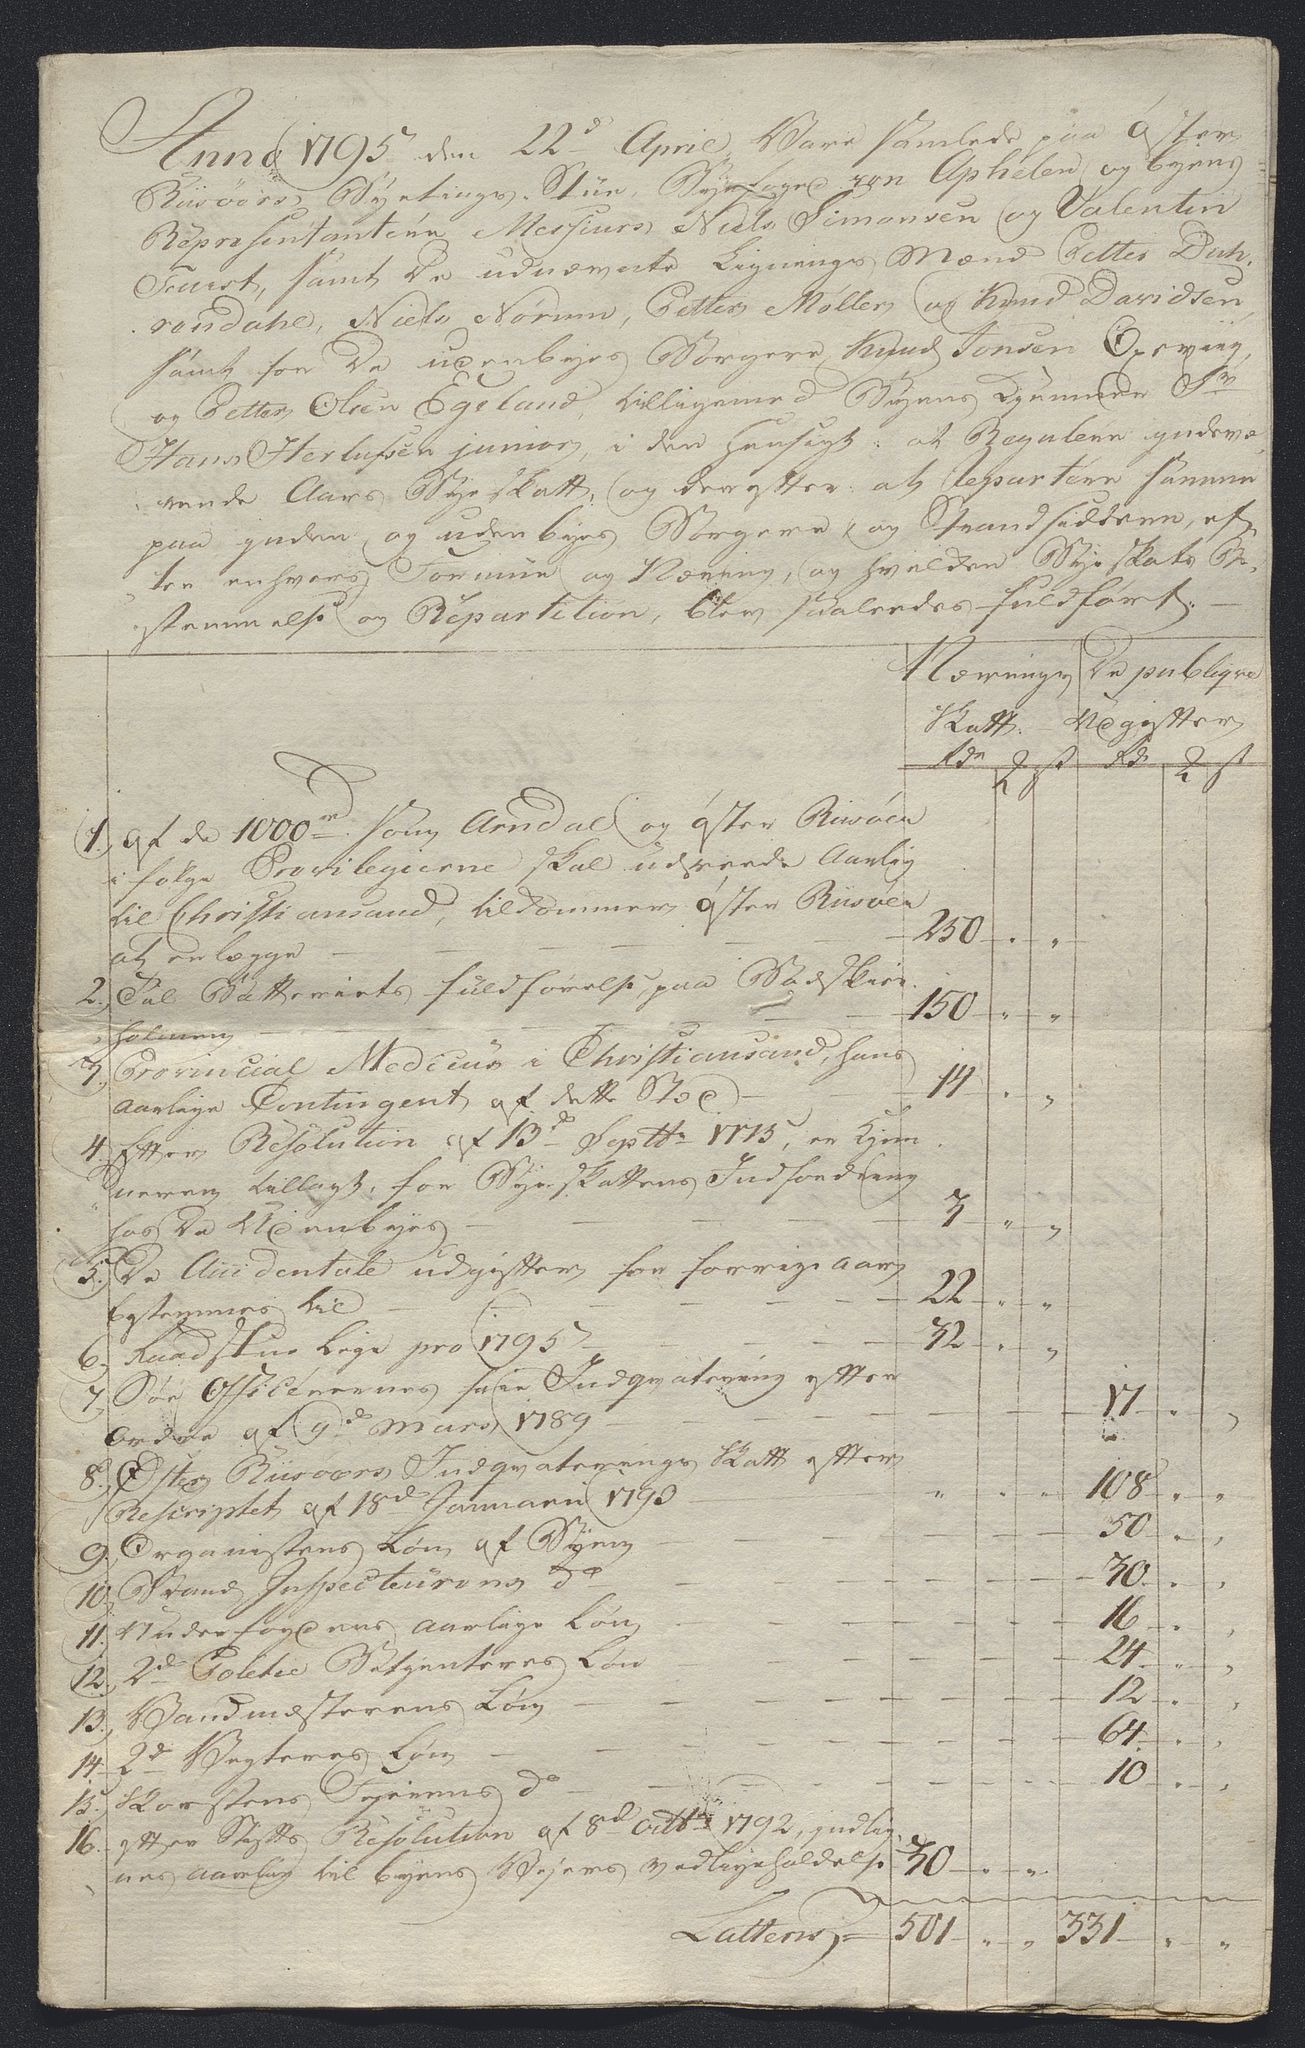 Anno 1795 den 22d April Vare samlede paa Øster
Riisøers Byetings-Stue, Byefoged von Aphelen og byens
Repræsentantere Messiurs Niels Simonsen og Valentin
Furst, samt De udnævnte Ligningsmænd Petter Dub-
rondahl, Niels Nørum, Petter Møller og Knud Davidsen
samt for De udenbyes Borgere Knud Jonsen
og Petter Olsen Egeland, tilligemed Byens Kjemner Sr
Hans Herlufsen junior, i den Hensigt at Regulere indevæ-
rende Aars Bye Skatt, og derefter at repartere samme
paa inden og udenbyes Borgere og Strandsiddere, ef-
ter enhvers Formue og Næring, og hvilken Bye Skats Be-
stemmelse og Repartition, blev saaledes fuldført. —
Nærings De publique
Skatt. Udgifter
Rdr ß Rdr ß
1. af de 1000 rd som Arndal og Øster Riisøer
i følge Privilegierne skal udrede Aarlig
til Christiansand, tilkommer Øster Riisøer
at erlægge — 250 " "
2. Til Batteriets fuldførelse paa Badskiær-
holmen — 150 " "
3. Provincial Medicus i Christiansand, hans
aarlige Contingent af dette Sted — 14 " "
4. Efter Resolution af 13de Septbr 1775, er Kjem-
neren tillagt, for Bye Skattens Indfordring
hos De Udenbyes — 3 " "
5. De Accidentale udgifter for forrige aar
bestemmes til — 22 " "
6. Raadstue Leje pro 1795 — 32 " "
7. Søe Officerernes frie Indqvatering efter
ordre af 9de Mars 1789 — 17 " "
8. Øster Riisøers Indqvaterings Skatt efter
Rescriptet af 18de Januarii 1793 — " " " 108 " "
9. Organistens Løn af Byen — 50 " "
10. Brand Inspecteurens do — 30 " "
11. Underfogdens aarlige Løn — 16 " "
12. 2de Politie Betjenteres Løn — 24 " "
13. Vandmesterens Løn — 12 " "
14. 2de Vægteres Løn — 64 " "
15. Skorstens Fejerens do — 10 " "
16. efter Stifts Resolution af 8de Octbr 1792, indlig-
nes aarlig til byens Vejers vedligeholdelse 30 " "
Latteris 501 " " 331 " "